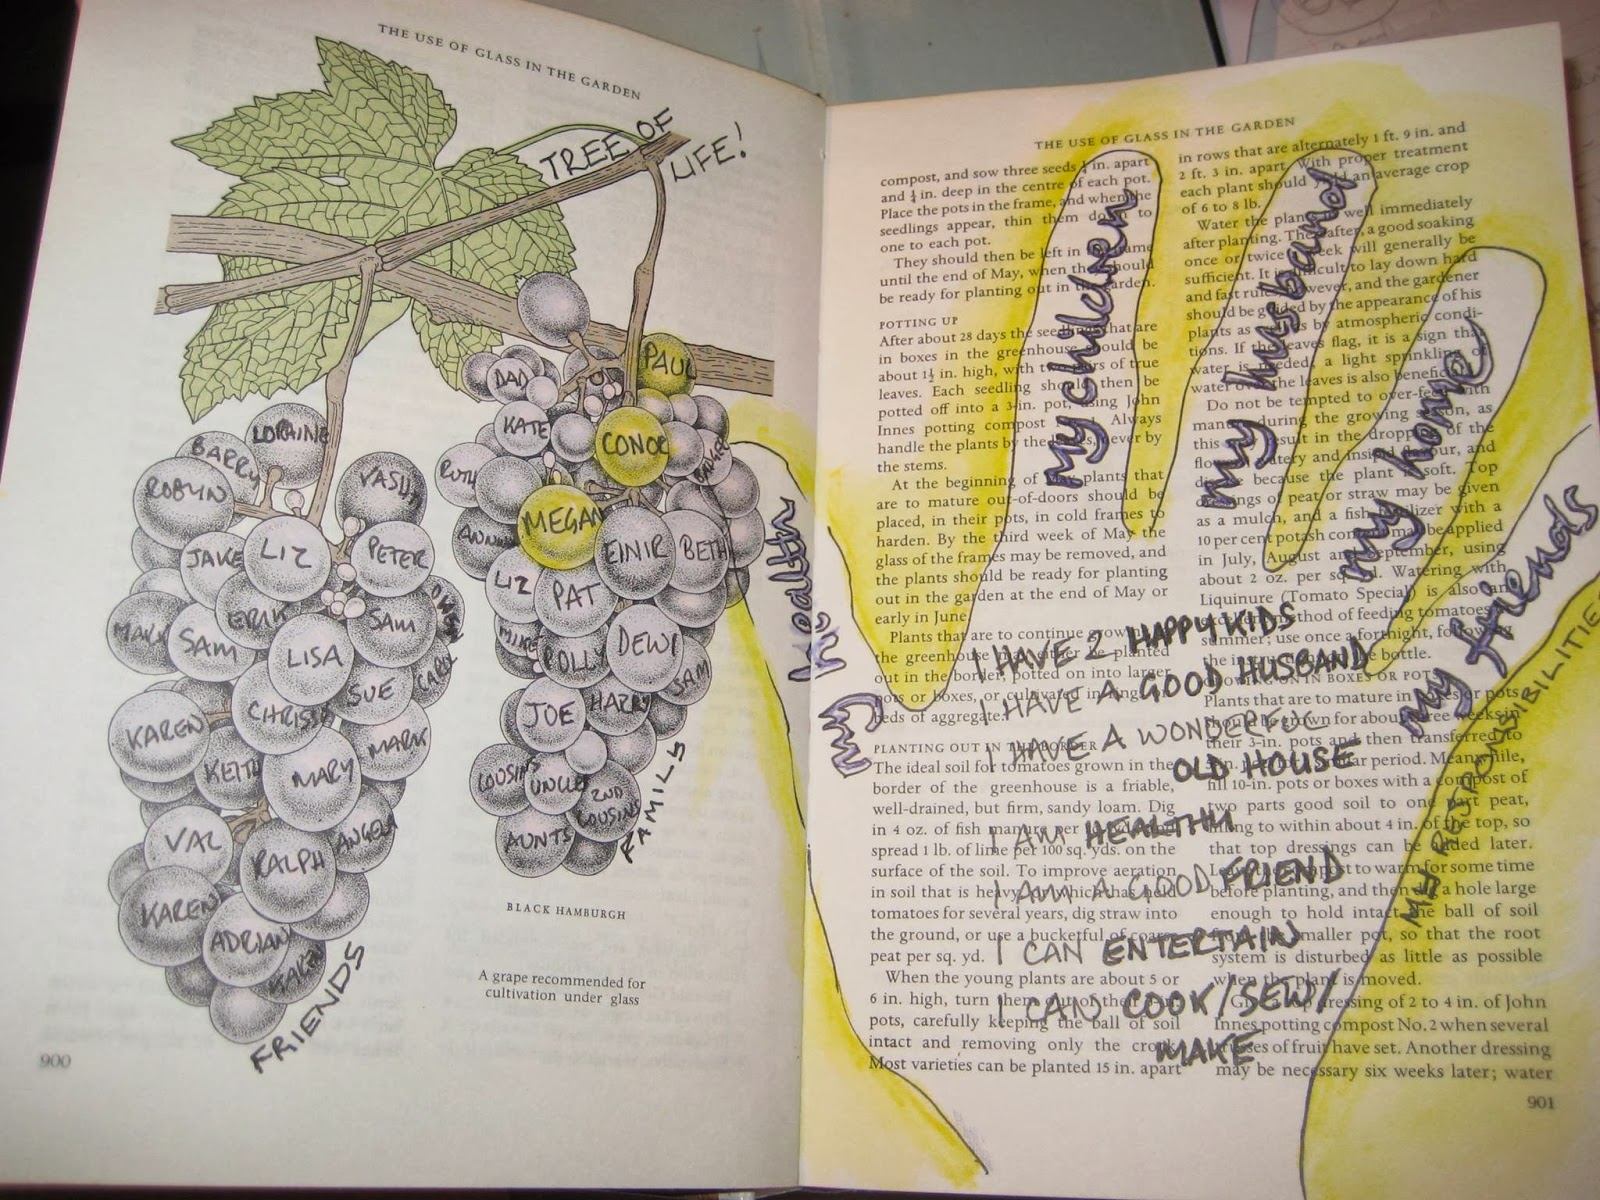 THE USE OF GLASS IN THE GARDEN
TREE OF
LIFE!
PAUL
DAD
KATE
CONOR
RUTH
MEGAN
EINIR
BETH
LIZ
PAT
MIKE
POLLY
DEWI
SAM
JOE
HARRY
COUSINS
UNCLES
2ND
COUSINS
AUNTS
FAMILY
LORAINE
BARRY
ROBYN
VASU
JAKE
LIZ
PETER
ERIK
OWEN
MARK
SAM
SAM
LISA
CARL
SUE
KAREN
CHRISSY
MARK
KEITH
MARY
VAL
RALPH
ANGELA
KAREN
ADRIAN
KAREN
FRIENDS
BLACK HAMBURGH
A grape recommended for
cultivation under glass
900
THE USE OF GLASS IN THE GARDEN
compost, and sow three seeds ½ in. apart
and ¼ in. deep in the centre of each pot.
Place the pots in the frame, and when the
seedlings appear, thin them down to
one to each pot.
They should then be left in the frame
until the end of May, when they should
be ready for planting out in the garden.
POTTING UP
After about 28 days the seedlings that are
in boxes in the greenhouse should be
about 1½ in. high, with two pairs of true
leaves. Each seedling should then be
potted off into a 3-in. pot, using John
Innes potting compost Always
handle the plants by the leaves, never by
the stems.
At the beginning of May plants that
are to mature out-of-doors should be
placed, in their pots, in cold frames to
harden. By the third week of May the
glass of the frames may be removed, and
the plants should be ready for planting
out in the garden at the end of May or
early in June.
Plants that are to continue growing in
the greenhouse may either be planted
out in the border, potted on into larger
pots or boxes, or cultivated in rings on
beds of aggregate.
PLANTING OUT IN THE BORDER
The ideal soil for tomatoes grown in the
border of the greenhouse is a friable,
well-drained, but firm, sandy loam. Dig
in 4 oz. of fish manure per sq. yd. and
spread 1 lb. of lime per 100 sq. yds. on the
surface of the soil. To improve aeration
in soil that is heavy or which has held
tomatoes for several years, dig straw into
the ground, or use a bucketful of coarse
peat per sq. yd.
When the young plants are about 5 or
6 in. high, turn them out of their 3-in.
pots, carefully keeping the ball of soil
intact and removing only the crock.
Most varieties can be planted 15 in. apart
in rows that are alternately 1 ft. 9 in. and
2 ft. 3 in. apart. With proper treatment
each plant should yield an average crop
of 6 to 8 lb.
Water the plants well immediately
after planting. Thereafter, a good soaking
once or twice a week will generally be
sufficient. It is difficult to lay down hard
and fast rules, however, and the gardener
should be guided by the appearance of his
plants as well as by atmospheric condi-
tions. If the leaves flag, it is a sign that
water is needed; a light sprinkling of
water over the leaves is also beneficial.
Do not be tempted to over-feed with
manure during the growing season, as
this may result in the dropping of the
flowers, watery and insipid flavour, and
disease because the plant is soft. Top
dressings of peat or straw may be given
as a mulch, and a fish fertilizer with a
10 per cent potash content may be applied
in July, August and September, using
about 2 oz. per sq. yd. Watering with
Liquinure (Tomato Special) is also an
excellent method of feeding tomatoes in
summer; use once a fortnight, following
the instructions on the bottle.
GROWING ON IN BOXES OR POTS
Plants that are to mature in boxes or pots
should be grown for about three weeks in
their 3-in. pots and then transferred to
5-in. pots for a similar period. Meanwhile,
fill 10-in. pots or boxes with a compost of
two parts good soil to one part peat,
filling to within about 4 in. of the top, so
that top dressings can be added later.
Leave the compost to warm for some time
before planting, and then dig a hole large
enough to hold intact the ball of soil
from the smaller pot, so that the root
system is disturbed as little as possible
when the plant is moved.
Give a top dressing of 2 to 4 in. of John
Innes potting compost No. 2 when several
trusses of fruit have set. Another dressing
may be necessary six weeks later; water
901
my health
my children
my husband
my home
my friends
MY RESPONSIBILITIES
I HAVE 2 HAPPY KIDS
I HAVE A GOOD HUSBAND
I HAVE A WONDERFUL
OLD HOUSE
I AM HEALTHY
I AM A GOOD FRIEND
I CAN ENTERTAIN
I CAN COOK/SEW/
MAKE